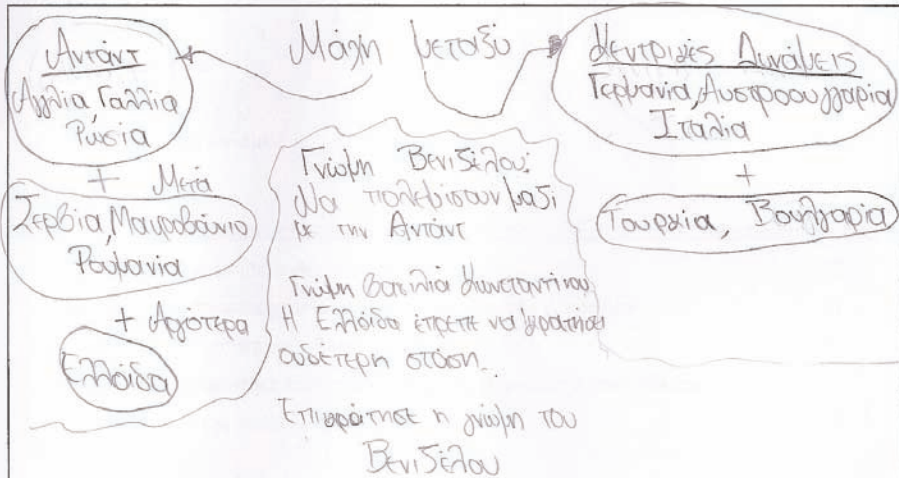 Μάχη μεταξύ
Αντάντ
Αγγλία, Γαλλία,
Ρωσία
+ Μετά
Σερβία, Μαυροβούνιο
Ρουμανία
+ Αργότερα
Ελλάδα
Γνώμη Βενιζέλου:
Να πολεμίσουν μαζί
με την Αντάντ
Γνώμη βασιλιά Κωνσταντίνου
Η Ελλάδα έπρεπε να κρατήσει
ουδέτερη στάση.
Επικράτησε η γνώμη του
Βενιζέλου
Κεντρικές Δυνάμεις
Γερμανία, Αυστροουγγαρία
Ιταλία
+
Τουρκία, Βουλγαρία